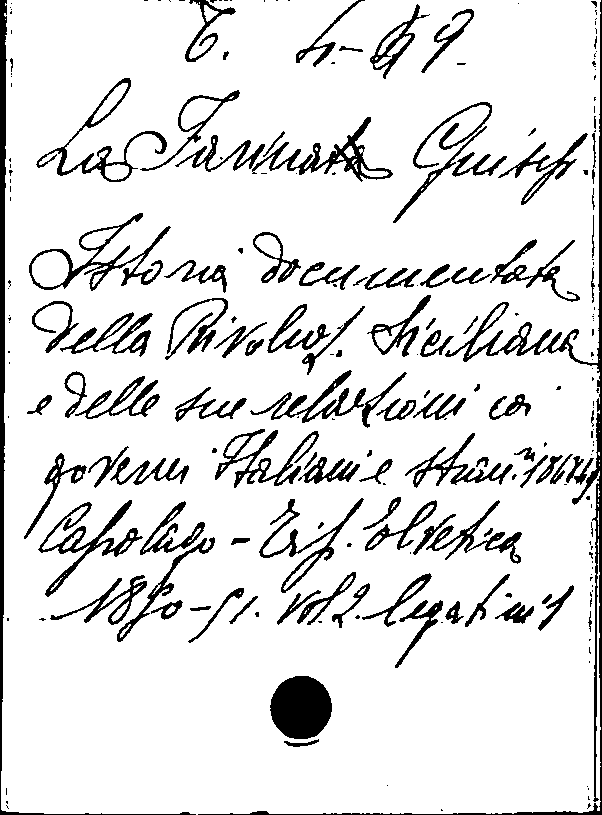 La Farina Giusep.
Istoria documentata
della Rivoluz. Siciliana
e delle sue relazioni coi
governi Italiani e stran.ⁱ
Capolago - Tip. Elvetica
1850-51. vol. 2. legati in 1